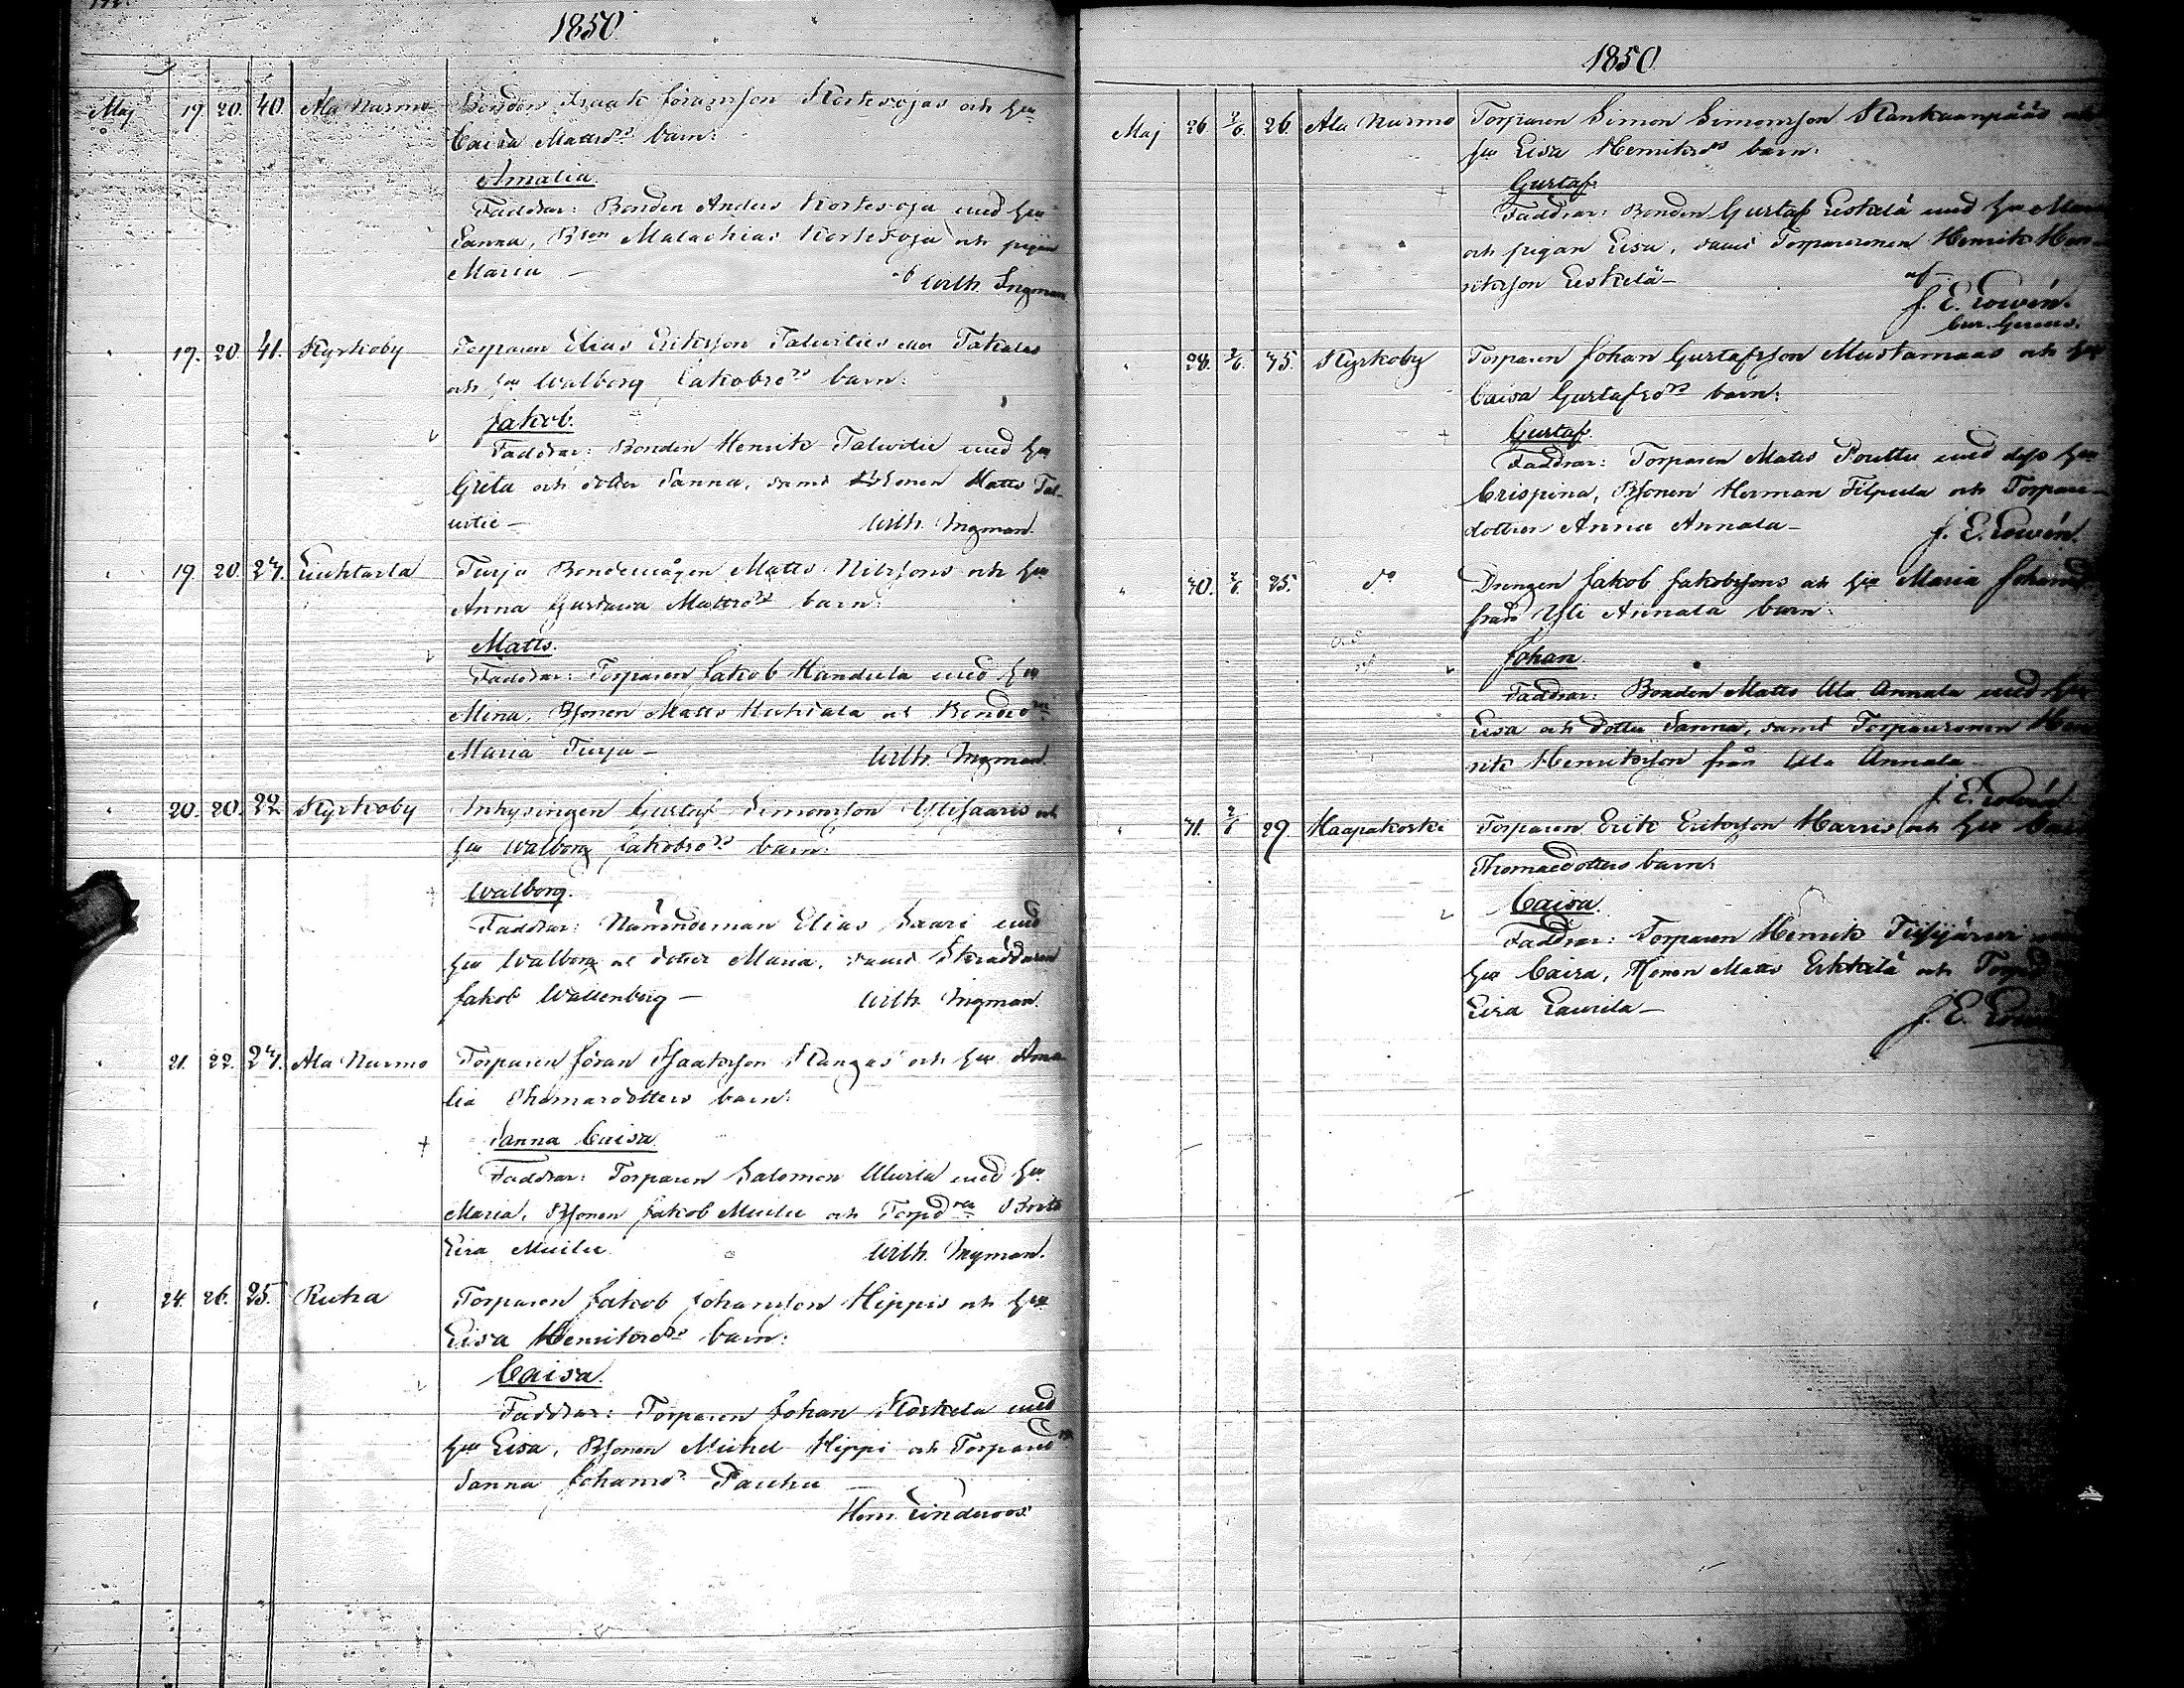 1850
Maj 19. 20. 40. Ala Nurmo Bonden Isaak Göransson Kortesojas och hu
Caisa Mattsdrs barn:
Amalia
Faddrar: Bonden Anders Kortesoja med hu
Sanna, Bson Malachias Kortesoja och pigan
Maria – af Wilh. Ingman
" 19. 20. 41. Kyrkoby Torparen Elias Eriksson Talvities eller Takalas
och hu Walborg Jakobsdrs barn:
Jakob.
Faddrar: Bonden Henrik Talvitie med hu
Greta och dotter Sanna, samt Bsonen Matts Tal-
vitie – Wilh. Ingman.
" 19. 20. 24. Liuhtarla Turja Bondemågen Matts Nilssons och hu
Anna Gustava Mattsdrs barn:
Matts.
Faddrar: Torparen Jakob Handula med hu
Mina, Bsonen Matts Huhtala och Bondedr
Maria Turja – Wilh. Ingman.
" 20. 20. 22. Kyrkoby Inhysingen Gustaf Simonsson Ylisaaris och
hu Walborg Jakobsdrs barn:
Walborg.
Faddrar: Nämndeman Elias Saari med
hu Walborg och dotter Maria, samt Skräddaren
Jakob Wallenberg – Wilh. Ingman.
" 21. 22. 24. Ala Nurmo Torparen Göran Isaaksson Kangas och hu Ama-
lia Thomasdotters barn:
Sanna Caisa
Faddrar: Torparen Salomon Murla med hu
Maria, Bsonen Jakob Muilu och Torpdrn Brita
Lisa Muilu. Wilh. Ingman.
" 24. 26. 25. Ruha Torparen Jakob Johansson Hippis och hu
Lisa Henriksdrs barn:
Caisa.
Faddrar: Torparen Johan Koskela med
hu Lisa, Bsonen Michel Hippi och Torparedr
Sanna Johansdr Pauhu
Herm. Linderoos.
1850
Maj 26. 2/6. 26. Ala Nurmo Torparen Simon Simonsson Kankaanpääs och
hu Lisa Henriksdrs barn:
Gustaf.
Faddrar: Bonden Gustaf Eskelä med hu
och pigan Lisa, samt Torparesonen Henrik Hen-
riksson Eskelä – af
J. E. Lovén.
" 28. 2/6. 35. Kyrkoby Torparen Johan Gustafsson Mustamaas och hu
Caisa Gustafsdrs barn:
Gustaf.
Faddrar: Torparen Matts Pouttu med dess hu
Crispina, Bsonen Herman Filpula och Torpare-
dottren Anna Annala – J. E. Lovén.
" 30. 2/6. 25. do Drengen Jakob Jakobssons och hu Maria
från Yli Annala barn:
Johan.
Faddrar: Bonden Matts Ala Annala med hu
Lisa och dotter Sanna, samt Torparesonen Hen-
rik Henriksson från Ala Annala –
J. E. Lovén
" 31. 2/6 29. Haapakoski Torparen Erik Eriksson Harris och hu
Thomaedotters barn:
Caisa.
Faddrar: Torparen Henrik
hu Caisa, Bsonen Matts Erkkilä och
Lisa Laurila – J. E.